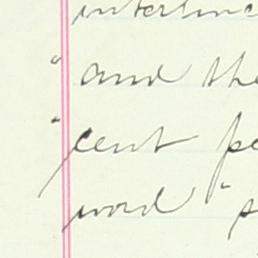 interlinc
" and the
" cent pe
word " s